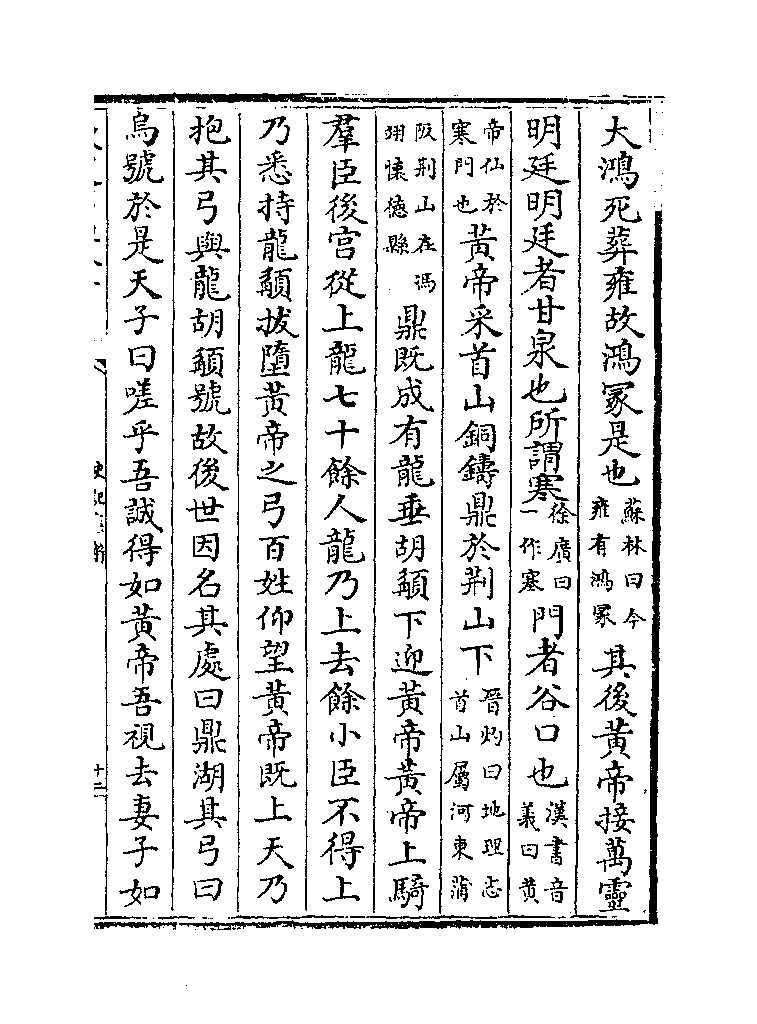 大鴻死葬雍故鴻冢是也蘇林曰今雍有鴻冢其後黃帝接萬靈
明廷明廷者甘泉也所謂寒徐廣曰一作塞門者谷口也漢書音義曰黄
帝仙於寒門也黃帝采首山銅鑄鼎於荆山下晉灼曰地理志首山屬河東蒲
阪荆山在馮翊懐徳縣鼎既成有龍垂胡䫇下迎黃帝黃帝上騎
羣臣後宫從上龍七十餘人龍乃上去餘小臣不得上
乃悉持龍䫇拔墮黃帝之弓百姓仰望黃帝既上天乃
抱其弓與龍胡䫇號故後世因名其處曰鼎湖其弓曰
烏號於是天子曰嗟乎吾誠得如黃帝吾視去妻子如
史記集解
十二